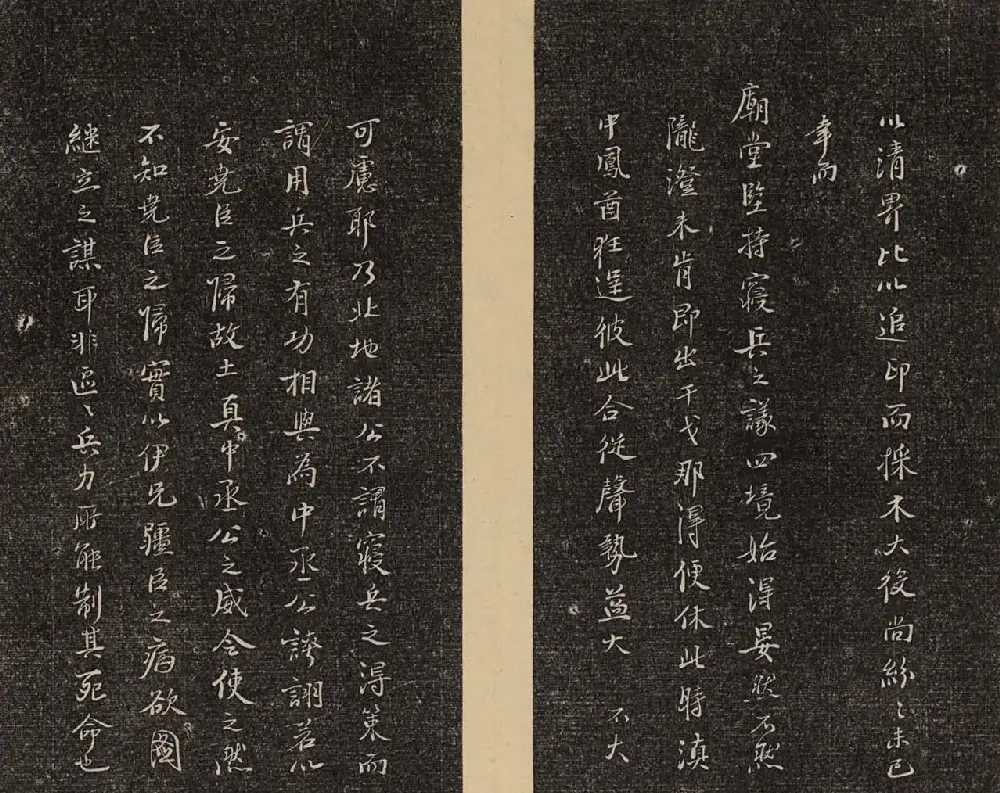 以清界比以追印而採木大役尚紛〻未已
幸而
廟堂堅持寢兵之議四境始得晏然不然
隴澄未肯即出干戈那得便休此時滇
中鳳酋狂逞彼此合從聲勢益大 不大
可慮耶乃此地諸公不謂寢兵之得策而
謂用兵之有功相與為中丞公誇詡若以
安堯臣之歸故土真中丞公之威令使之然
不知堯臣之歸實以伊兄疆臣之病欲圖
继立之謀耳非區〻兵力所能制其死命也